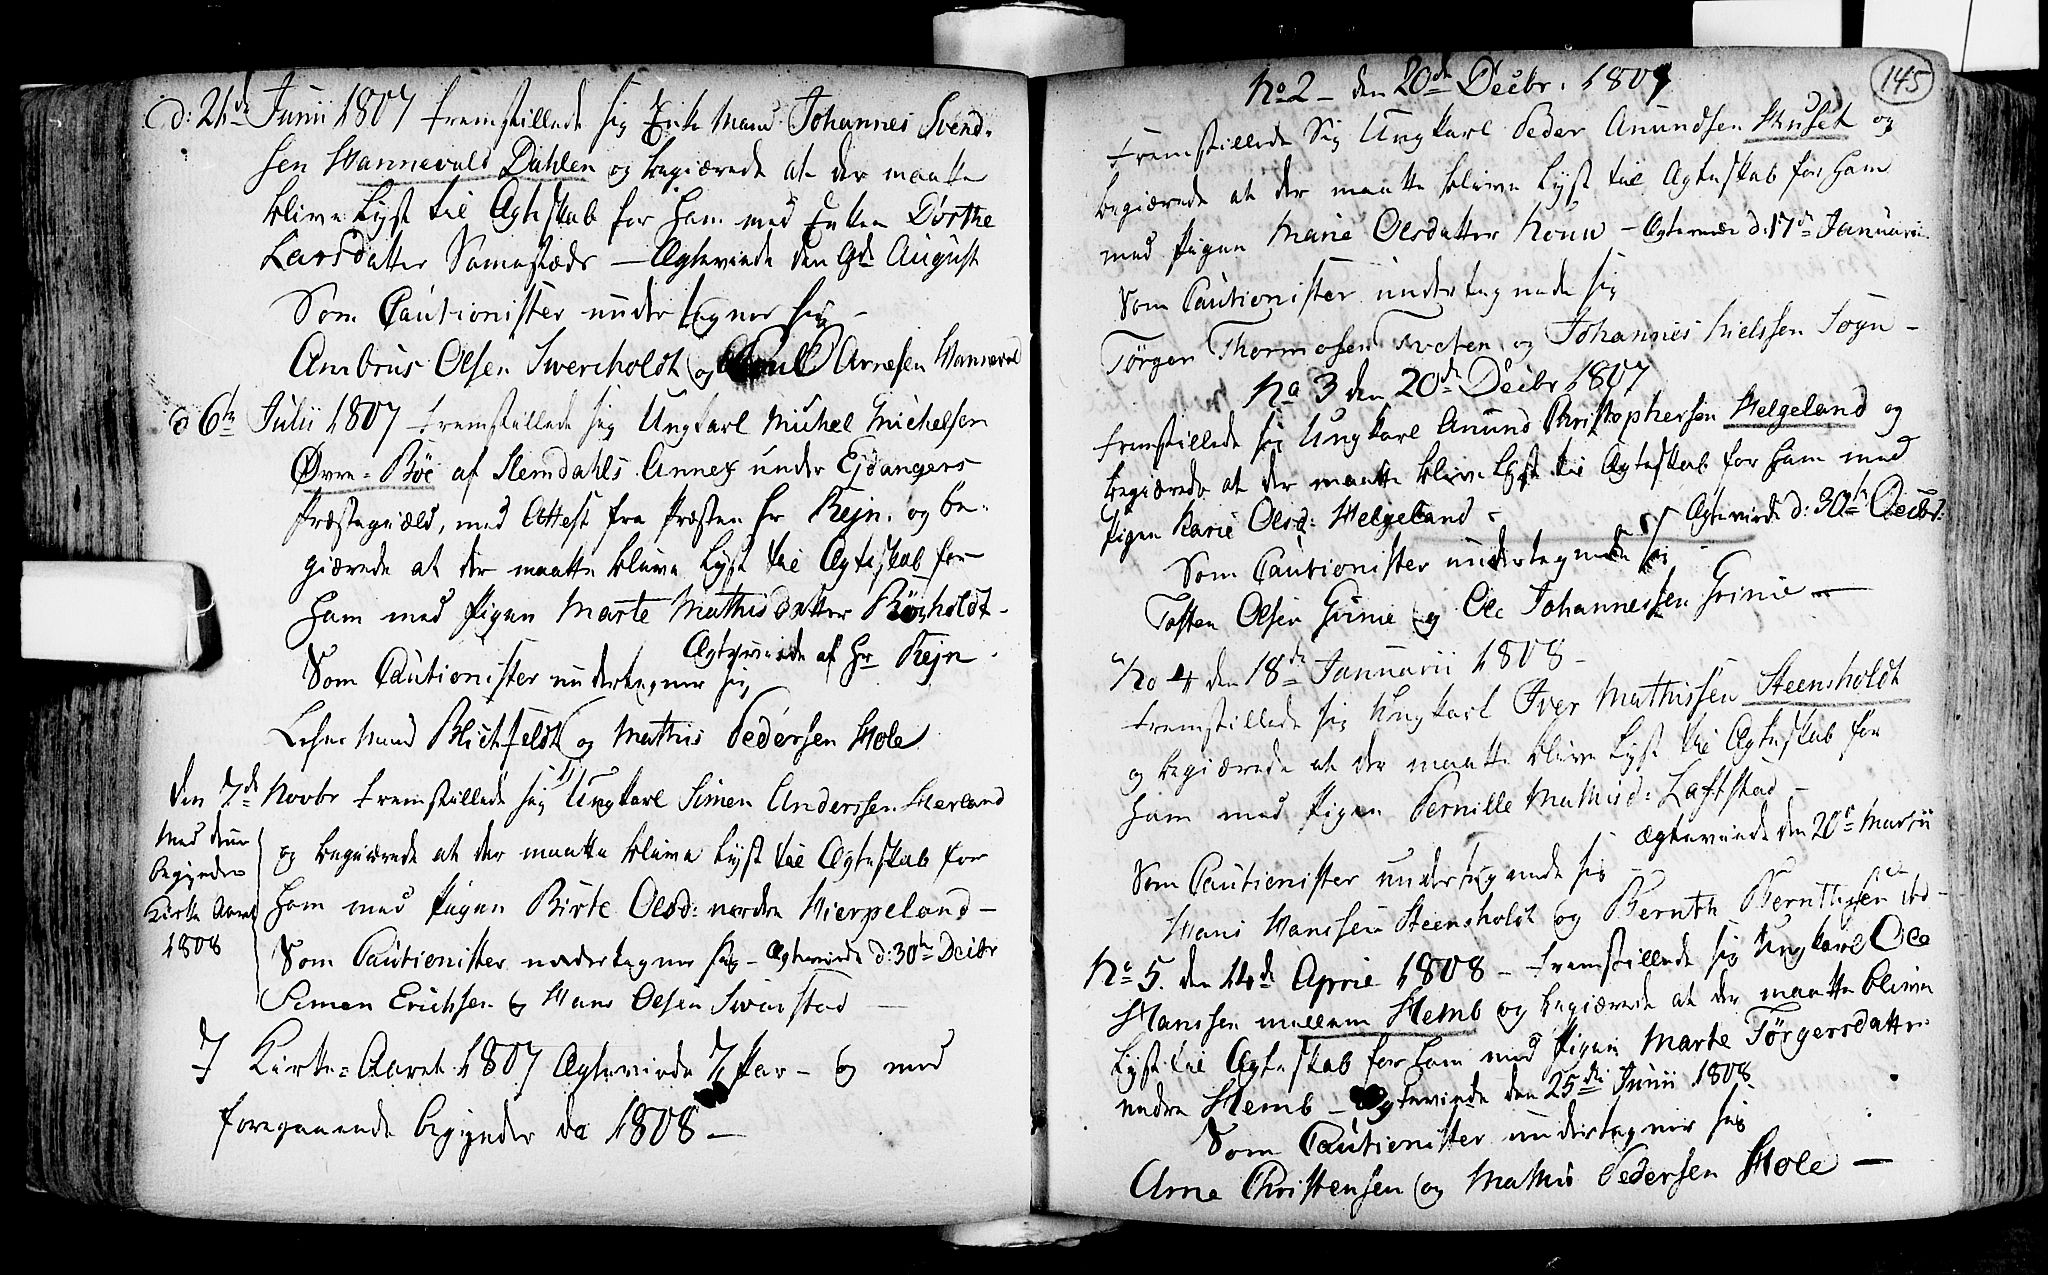 d: 21de Junii 1807 fremstillede sig Enke Mand Johannes Svend-
sen Hannevold Dahlen og begiærede at der maatte
blive lyst til Ægteskab for ham med Enken Dorthe
Larsdatter Samestæds — Ægteviede den 9de August
Som Cautionister undertegner sig –
Ambrus Olsen Sverholdt og Arnesen Hannevold
d 6te Julii 1807 fremstillede sig Ungkarl Michel Michelsen
Øvre-Böe af Slemdahls Annex under Ejdangers
Præstegiæld, med Attest fra Præsten Hr Rejn. og be-
giærede at der maatte blive lyst til Ægteskab for
ham med Pigen Marte Mathisdatter Rönholdt –
Ægteviede af Hr Rejn.
Som Cautionister undertegner sig
Lehns Mand Blichfeldt og Mathis Pedersen Hole
den 7de Novbr fremstillede sig Ungkarl Simen Anderssen Herland
og begiærede at der maatte blive lyst til Ægteskab for
ham med Pigen Birte Olsd: nordre Hierpeland –
Som Cautionister undertegner sig – Ægteviede d: 30te Decbr
Simen Erichsen og Hans Olsen Svarstad —
Med denne
begynder
Kirke Aaret
1808
I Kirke-Aaret 1807 Ægteviede 7 Par – og med
foregaaende begynder da 1808 —
145
No 2 – den 20de Decbr. 1807
Fremstillede Sig Ungkarl Peder Anundsen Huset og
begiærede at der maatte blive lyst til Ægteskab for ham
med Pigen Marie Olsdatter – Ægteviede d: 17de Januarii
Som Cautionister undertegnede sig
Törger Thormosen Tveten og Johannes Nielssen Sogn –
No 3 den 20de Decbr 1807
fremstillede sig Ungkarl Anund Christophersen Helgeland og
begiærede at der maatte blive lyst til Ægteskab for ham med
Pigen Karie Olsd: Helgeland –
Ægteviede d: 30te Decbr:
Som Cautionister undertegnede sig –
Tosten Olsen Grinie og Ole Johannessen Grinie —
No 4 den 18de Januarii 1808 –
fremstillede sig Ungkarl Iver Mathissen Steensholdt
og begiærede at der maatte blive lyst til Ægteskab for
ham med Pigen Pernille Mathisd: Laftstad –
Ægteviede den 20de Martii
Som Cautionister undertegnede sig –
Hans Hanssen Steensholdt og Bernth Bernthssen ibd –
No 5. den 14de April 1808 – fremstillede sig Ungkarl Ole
Hanssen mellem Hemb og begiærede at der maatte blive
lyst til Ægteskab for ham med Pigen Marte Törgersdatter
nedre Hemb – Ægteviede den 25de Junii 1808
Som Cautionister undertegner sig
Arne Christensen og Mathis Pedersen Hole —